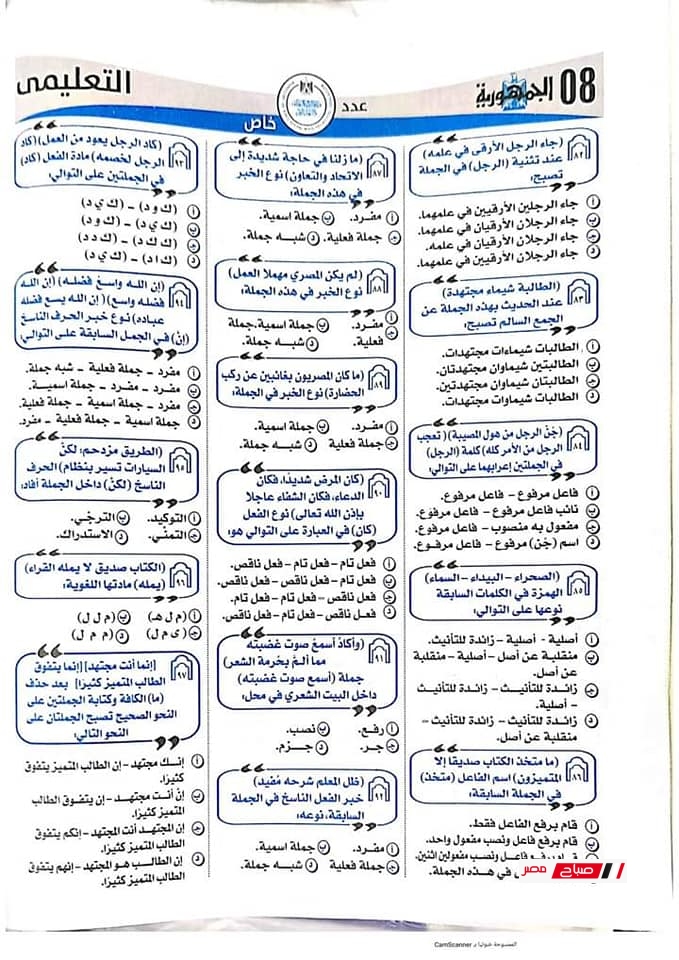 08 الجمهورية
عدد
خاص
التعليمى
٨٢
(جاء الرجل الأرقى في علمه)
عند تثنية (الرجل) في الجملة
تصبح:
أ جاء الرجلين الأرقيين في علمهما.
ب جاء الرجلان الأرقيان في علمهما.
ج جاء الرجلان الأرقيان في علمه.
د جاء الرجلان الأرقيين في علمهما.
٨٣
(الطالبة شيماء مجتهدة)
عند الحديث بهذه الجملة عن
الجمع السالم تصبح:
أ الطالبات شيماءات مجتهدات.
ب الطالبتين شيماوان مجتهدتان.
ج الطالبتان شيماوان مجتهدتين.
د الطالبات شيماوات مجتهدات.
٨٤
(جُنّ الرجل من هول المصيبة) (تعجب
الرجل من الأمر كله) كلمة (الرجل)
في الجملتين إعرابهما على التوالي:
أ فاعل مرفوع - فاعل مرفوع.
ب نائب فاعل مرفوع - فاعل مرفوع.
ج مفعول به منصوب - فاعل مرفوع.
د اسم (جُن) مرفوع - فاعل مرفوع.
٨٥
(الصحراء - البيداء - السماء)
الهمزة في الكلمات السابقة
نوعها على التوالي:
أ أصلية - أصلية - زائدة للتأنيث.
ب منقلبة عن أصل - أصلية - منقلبة
عن أصل.
ج زائدة للتأنيث - زائدة للتأنيث
- أصلية.
د زائدة للتأنيث - زائدة للتأنيث -
منقلبة عن أصل.
٨٦
(ما متخذ الكتاب صديقا إلا
المتميزون) اسم الفاعل (متخذ)
في الجملة السابقة:
أ قام برفع الفاعل فقط.
ب قام برفع فاعل ونصب مفعول واحد.
برفع فاعل ونصب مفعولين اثنين.
في هذه الجملة.
٨٧
(ما زلنا في حاجة شديدة إلى
الاتحاد والتعاون) نوع الخبر
في هذه الجملة:
أ مفرد. ب جملة اسمية.
ج جملة فعلية. د شبه جملة.
٨٨
(لم يكن المصري مهملا العمل)
نوع الخبر في هذه الجملة:
أ مفرد. ب جملة اسمية.جملة
ج فعلية. د شبه جملة.
٨٩
(ما كان المصريون بغائبين عن ركب
الحضارة) نوع الخبر في الجملة:
أ مفرد. ب جملة اسمية.
ج جملة فعلية د شبه جملة.
٩٠
(كان المرض شديدًا، فكان
الدعاء، فكان الشفاء عاجلا
بإذن الله تعالى) نوع الفعل
(كان) في العبارة على التوالي هو:
أ فعل تام - فعل تام - فعل ناقص.
ب فعل تام - فعل ناقص - فعل ناقص.
ج فعل ناقص - فعل تام - فعل تام.
د فعل ناقص - فعل تام - فعل ناقص.
٩١
(وأكادُ أسمعُ صوت غضبته
مما ألمّ بخرمة الشعر)
جملة (أسمع صوت غضبته)
داخل البيت الشعري في محل:
أ رفع. ب نصب.
ج جر. د جزم.
٩٢
(ظل المعلم شرحه مُفيد)
خبر الفعل الناسخ في الجملة
السابقة، نوعه:
أ مفرد. ب جملة اسمية.
ج جملة فعلية د شبه جملة.
٩٣
(كاد الرجل يعود من العمل) (كاد
الرجل لخصمه) مادة الفعل (كاد)
في الجملتين على التوالي:
أ (ك و د) - (ك ي د)
ب (ك ي د) - (ك و د)
ج (ك ك د) - (ك د د)
د (ك ا د) - (ك ي د)
٩٤
(إن الله واسعٌ فضله) (إن الله
فضله واسع) (إن الله يسع فضله
عباده) نوع خبر الحرف الناسخ
(إنّ) في الجمل السابقة على التوالي:
أ مفرد - جملة فعلية - شبه جملة.
ب مفرد - مفرد - جملة اسمية.
ج مفرد - جملة اسمية - جملة فعلية.
د جملة اسمية - جملة فعلية - مفرد.
٩٥
(الطريق مزدحم: لكنّ
السيارات تسير بنظام) الحرف
الناسخ (لكنّ) داخل الجملة أفاد:
أ التوكيد. ب الترجّي.
ج التمنّي. د الاستدراك.
٩٦
(الكتاب صديق لا يمله القراء)
(يمله) مادتها اللغوية:
أ (م ل هـ) ب (م ل ل)
ج (ي م ل) د (م م ل)
٩٧
[إنما أنت مجتهد] [إنما يتفوق
الطالب المتميز كثيرًا] بعد حذف
(ما) الكافة وكتابة الجملتين على
النحو الصحيح تصبح الجملتان على
النحو التالي:
أ إنك مجتهد - إن الطالب المتميز يتفوق
كثيرًا.
ب إنّ أنت مجتهد - إن يتفوق الطالب
المتميز كثيرًا.
ج إن المجتهد أنت المجتهد - إنكم يتفوق
الطالب المتميز كثيرًا.
د إن الطالب هو المجتهد - إنهم يتفوق
الطالب المتميز كثيرًا.
صباح مصر
الممسوحة ضوئيا بـ CamScanner